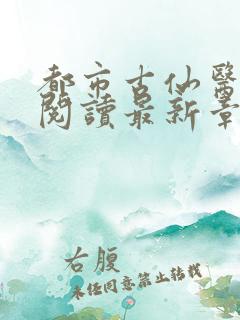 都市古仙醫
閱讀最新章
右腹
未經同意禁止轉載